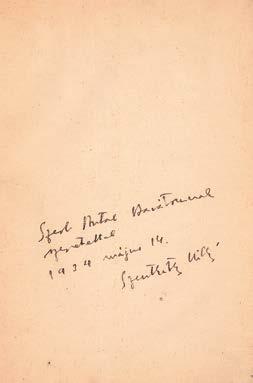 Szerb Antal barátomnak
szeretettel
1934 május 14.
Szentkuthy Miklós